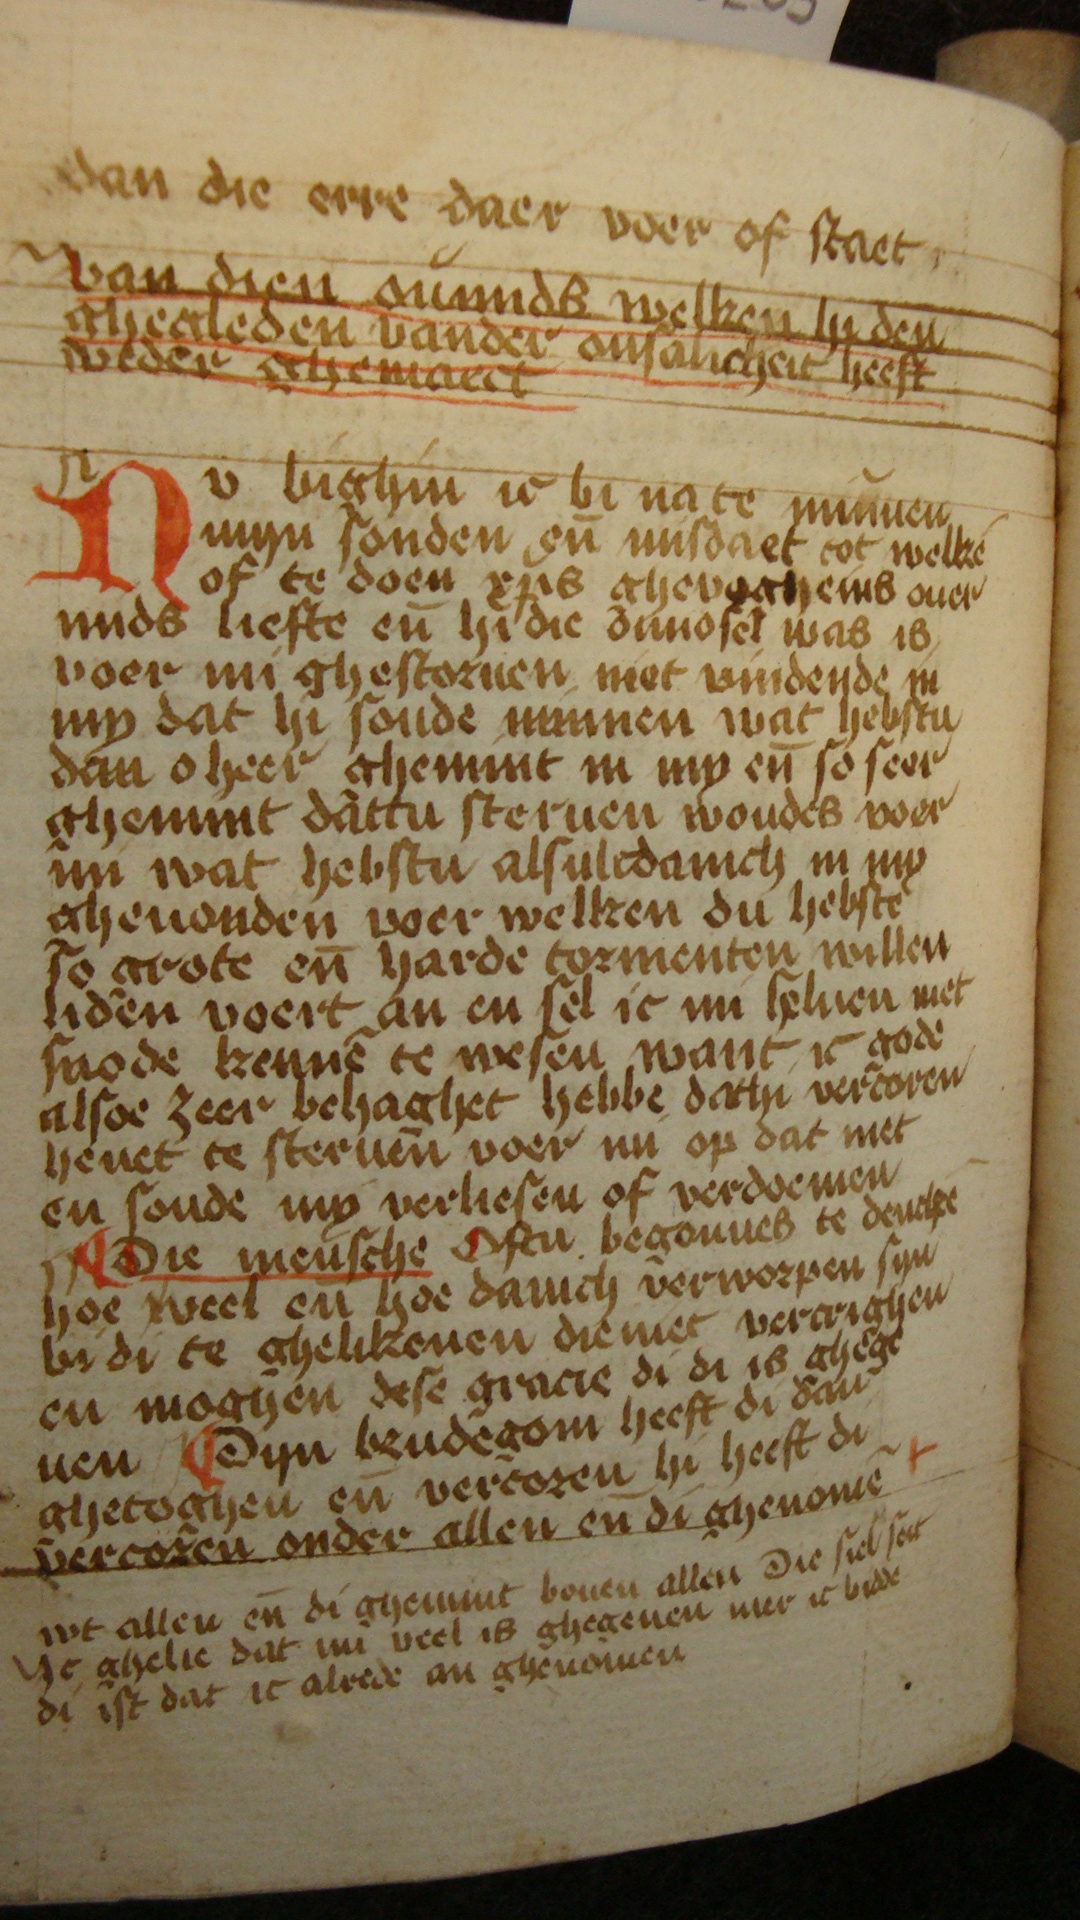 dan die erre daer voer of staet
van dien ouumds welken hi den
ghegleden vander onsalicheit heeft
weder ghemaect
Nv bighin ic bi na te minnen
mijn sonden en̄ misdaet tot welke
of te doen xp̄s ghevoghems ouer
mids liefte en̄ hi die onnosel was is
voer mi ghestoruen niet vindende in
my dat hi soude minnen wat hebstu
dan o heer ghemint in my en̄ so seer
ghemint dāttu steruen woudes voer
mi wat hebstu alsulcdanich in my
gheuonden voer welken du hebste
so grote en̄ harde tormenten willen
liden voert an en sel ic mi seluen niet
snode kennē te wesen want ic gode
alsoe zeer behaghet hebbe dathi vercoren
heuet te steruen voer mi op dat niet
en soude my verliesen of verdoemen
Die mensche Ofstu begonnes te dencke
hoe veel en̄ hoe danich verworpen sijn
bi di te ghelikenen die niet vercrighen
en moghen dese gracie di di is ghege
uen Dijn brudegom heeft di dan
ghetoghen en̄ vercoren hi heeft di
vercoren onder allen en̄ di ghenomē
wt allen en̄ di ghemint bouen allen Die siel seit
Ic ghelie dat mi veel is ghegeuen mer ic bidde
di ist dat ic alrede an ghenomen